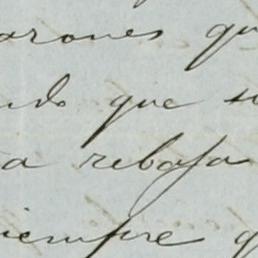 arones qu
ndo que so
a rebaja
siempre q